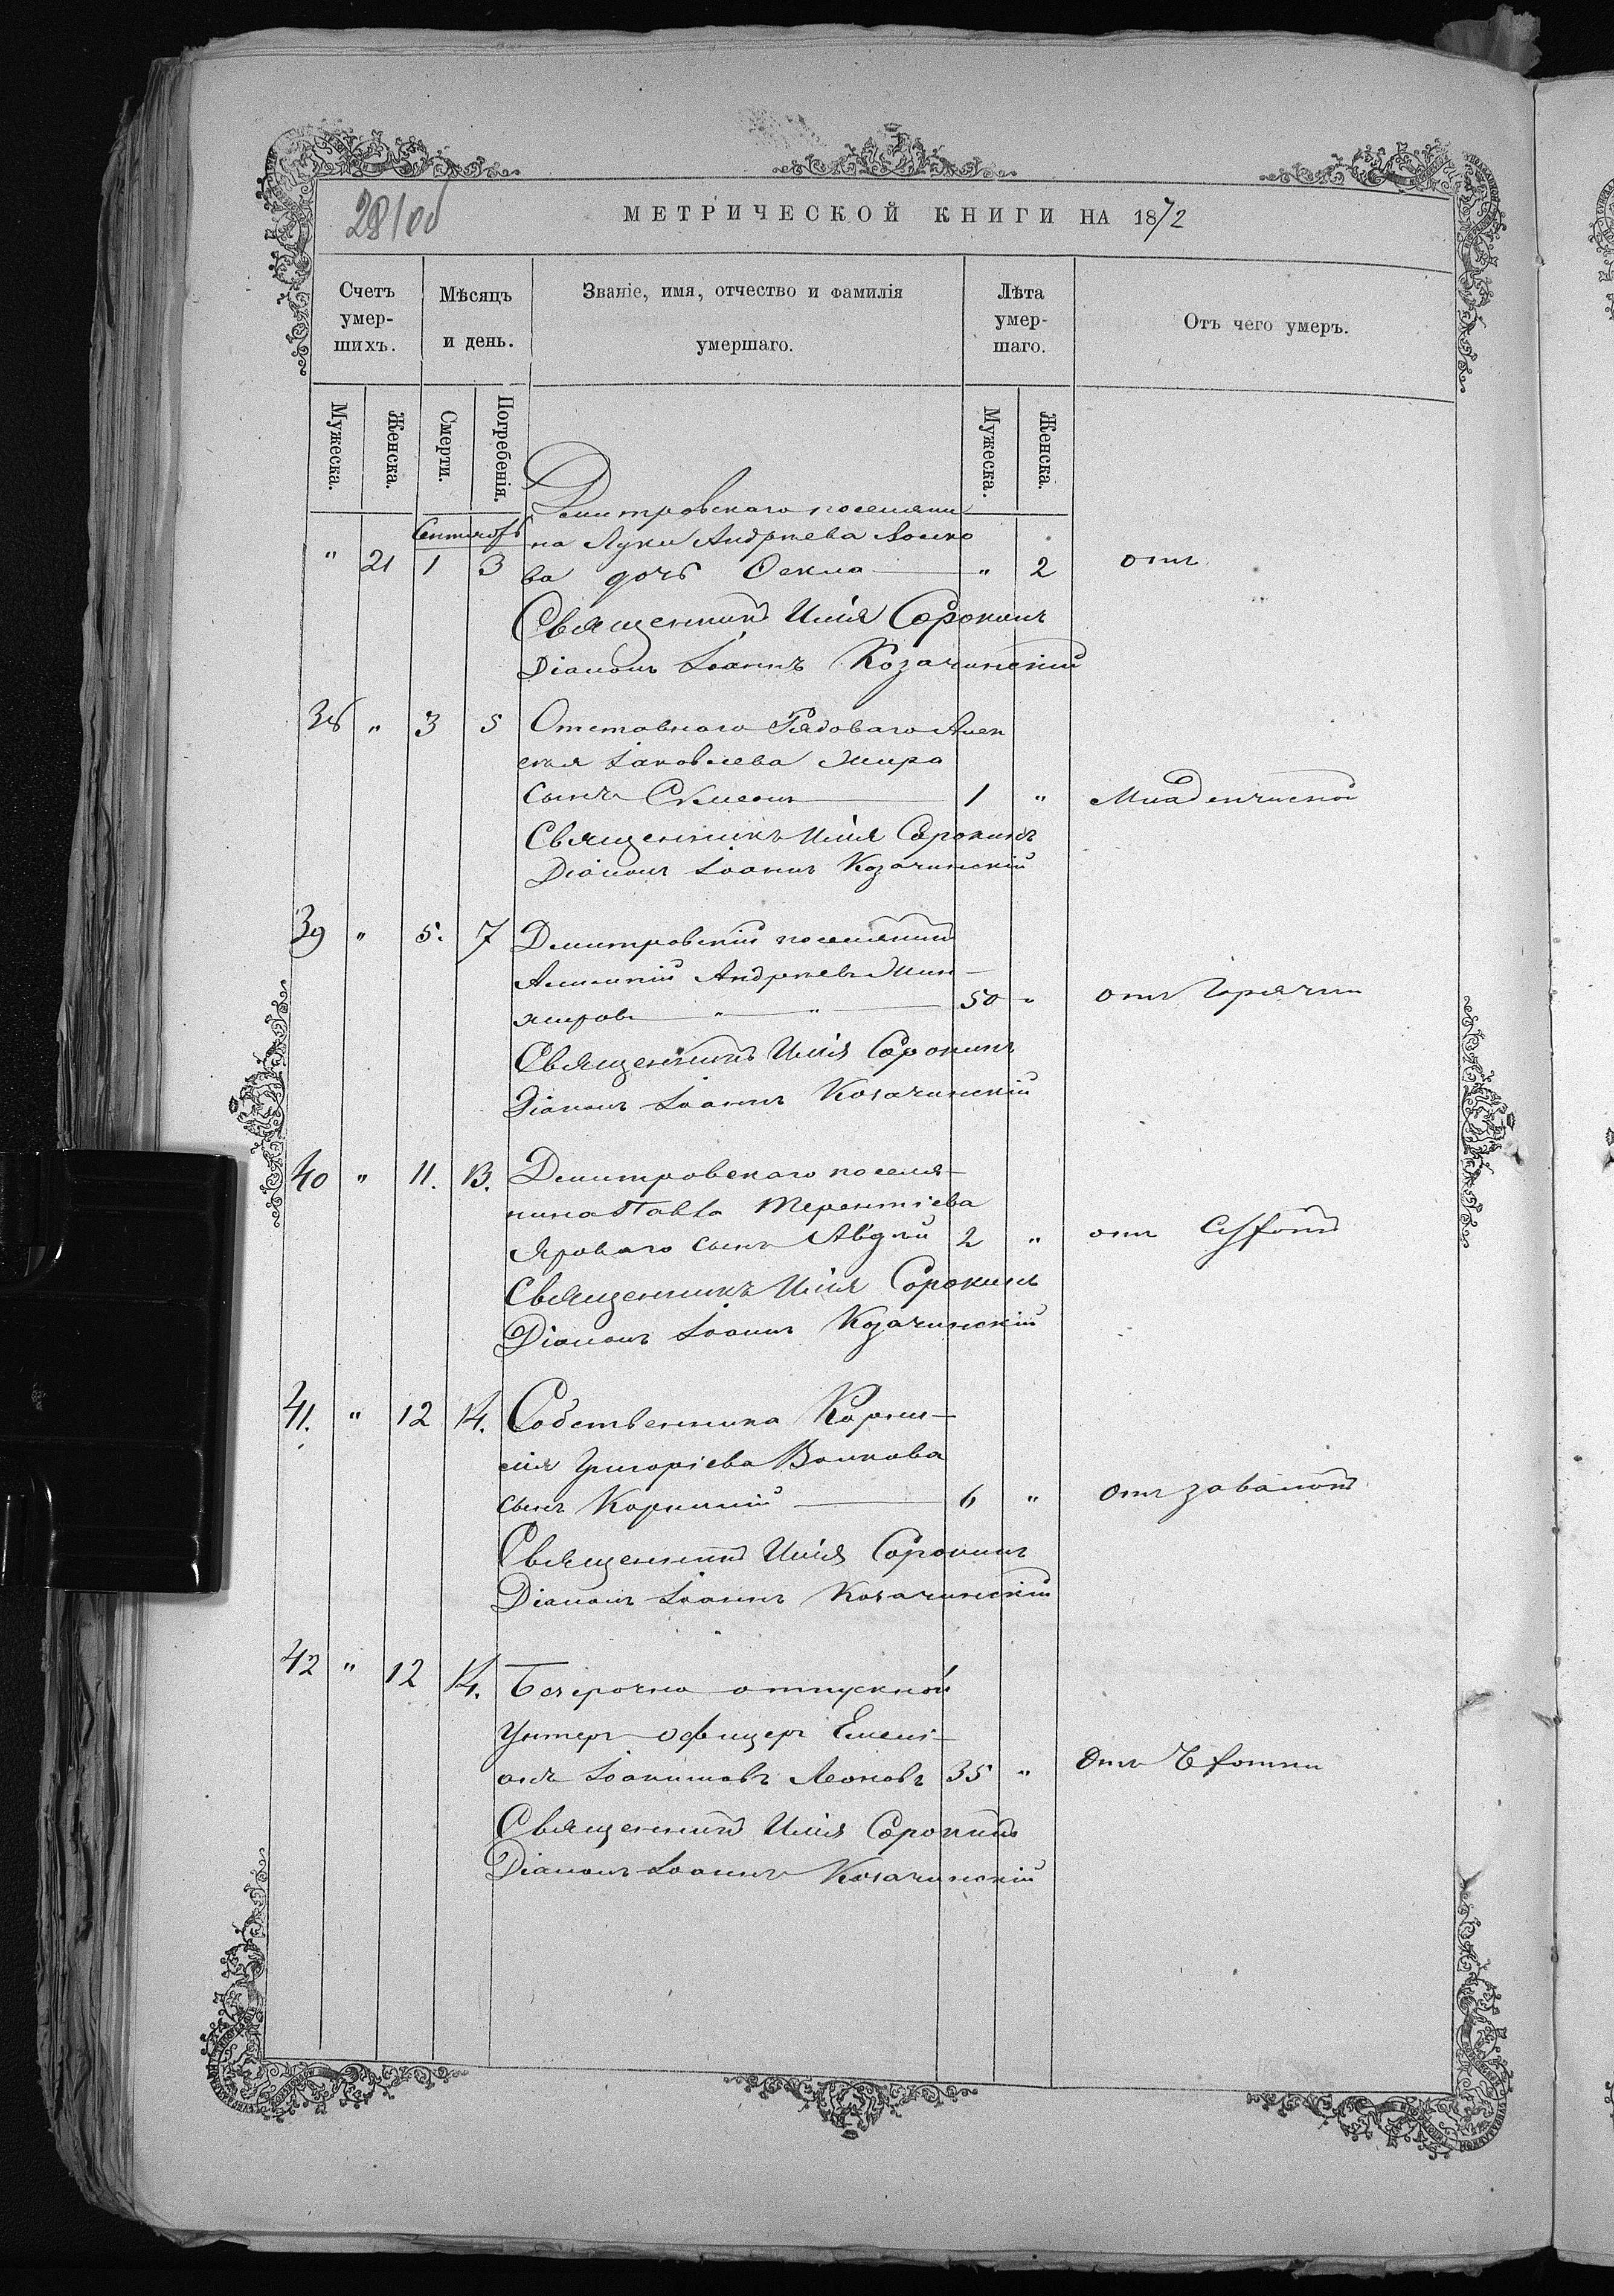 281об
МЕТРИЧЕСКОЙ КНИГИ НА 1872
Счетъ умер-шихъ.
Мѣсяцъ и день.
Званіе, имя, отчество и фамилія умершаго.
Лѣта умер-шаго.
Отъ чего умеръ.
Мужеска.
Женска.
Смерти.
Погребенія.
Мужеска.
Женска.
Дмитровскаго поселяни
Сентябрь
на Луки Андреева
" 21 1 3 ва дочь Ѳекла " 2 отъ
Священникъ Илія Сорокинъ
Діаконъ Іоаннъ Козачинскій
38 " 3 5 Отставнаго Рядоваго Алек
сѣя Іаковлева
сынъ Симеонъ 1 " Младенческой
Священникъ Илія Сорокинъ
Діаконъ Іоаннъ Козачинскій
39 " 5. 7 Дмитровскій поселянинъ
Андреевъ
50 " отъ Горячки
Священникъ Илія Сорокинъ
Діаконъ Іоаннъ Козачинскій
40 " 11. 13. Дмитровскаго поселя-
нина Павла Терентіева
Яроваго сынъ Авдій 2 " отъ
Священникъ Илія Сорокинъ
Діаконъ Іоаннъ Козачинскій
41. " 12 14. Собственника Корни-
лія Григоріева Волкова
сынъ Корнилій 6 " отъ
Священникъ Илія Сорокинъ
Діаконъ Іоаннъ Козачинскій
42 " 12 14. Безсрочно отпускной
Унтеръ-офицеръ Емелі-
анъ Іоакимовъ Леоновъ 35 " Отъ Чахотки
Священникъ Илія Сорокинъ
Діаконъ Іоаннъ Козачинскій